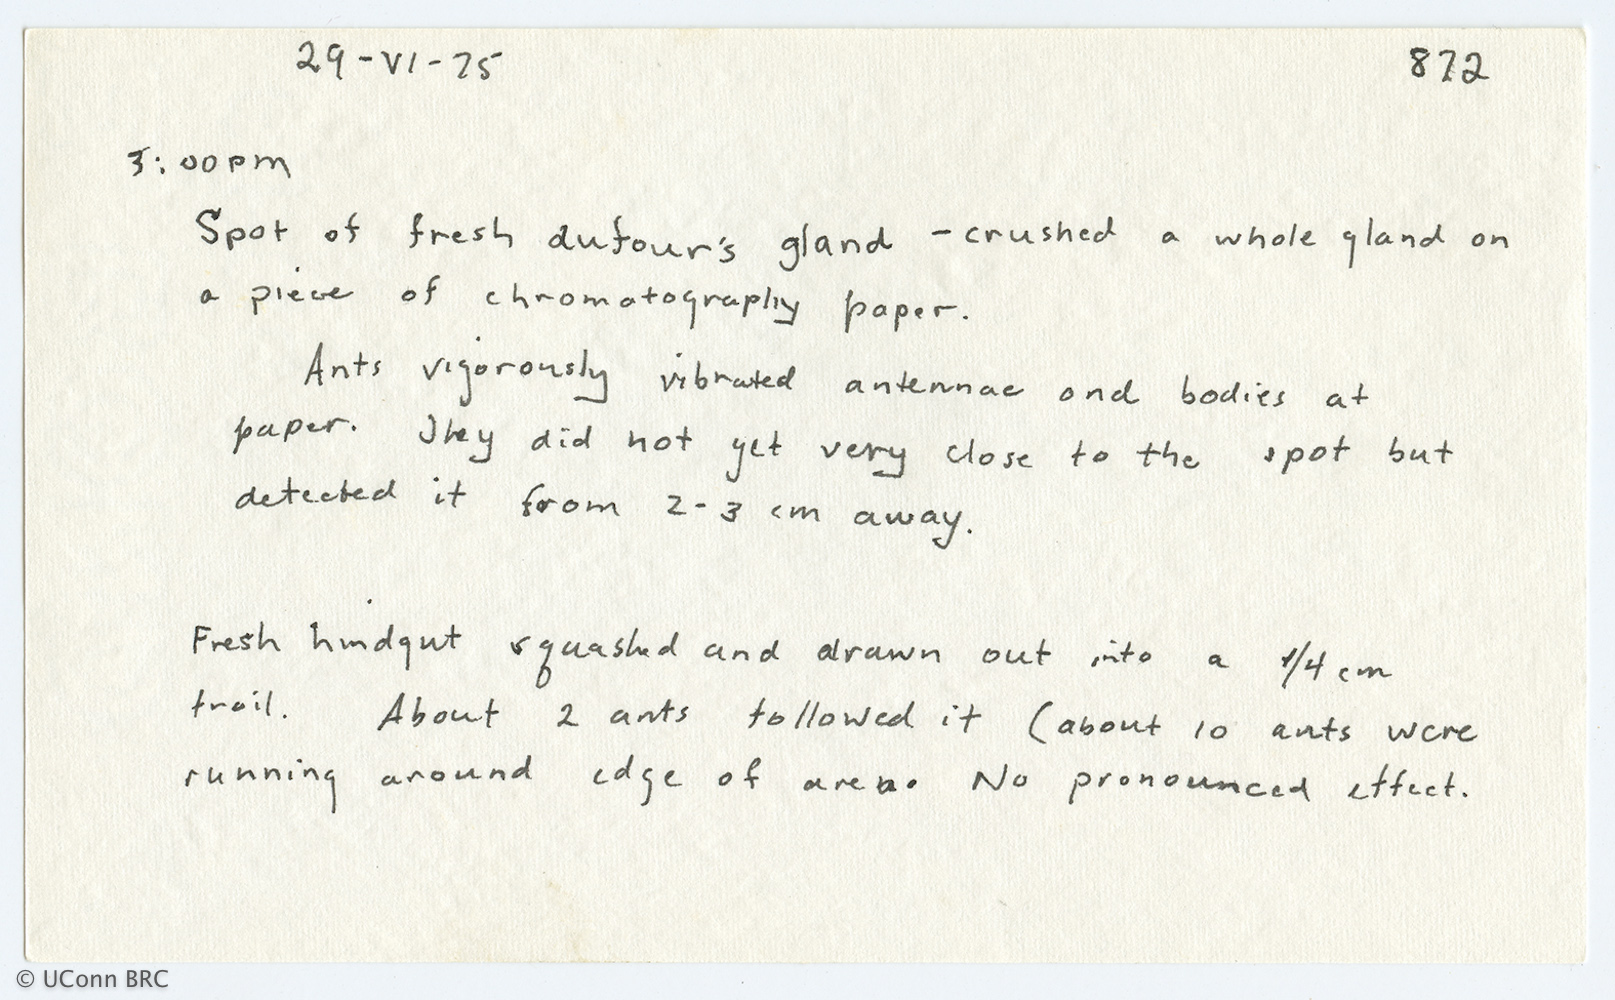 29-VI-75 872
5:00pm
Spot of fresh dufour's gland - crushed a whole gland on
a piece of chromatography paper.
Ants vigorously vibrated antennae and bodies at
paper. They did not get very close to the spot but
detected it from 2-3 cm away.
Fresh hindgut squashed and drawn out into a 1/4 cm
trail. About 2 ants followed it (about 10 ants were
running around edge of area. No pronounced effect.
© UConn BRC